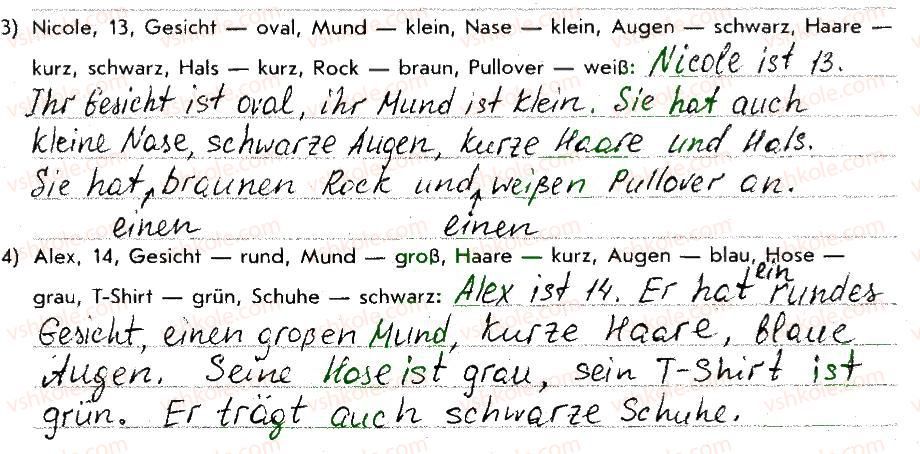 3) Nicole, 13, Gesicht — oval, Mund — klein, Nase — klein, Augen — schwarz, Haare —
kurz, schwarz, Hals — kurz, Rock — braun, Pullover — weiß: Nicole ist 13.
Ihr Gesicht ist oval, ihr Mund ist klein. Sie hat auch
kleine Nase, schwarze Augen, kurze Haare und Hals.
Sie hat braunen Rock und weißen Pullover an.
einen einen
4) Alex, 14, Gesicht — rund, Mund — groß, Haare — kurz, Augen — blau, Hose —
ein
grau, T-Shirt — grün, Schuhe — schwarz: Alex ist 14. Er hat rundes
Gesicht, einen großen Mund, kurze Haare, blaue
Augen. Seine Hose ist grau, sein T-Shirt ist
grün. Er trägt auch schwarze Schuhe.